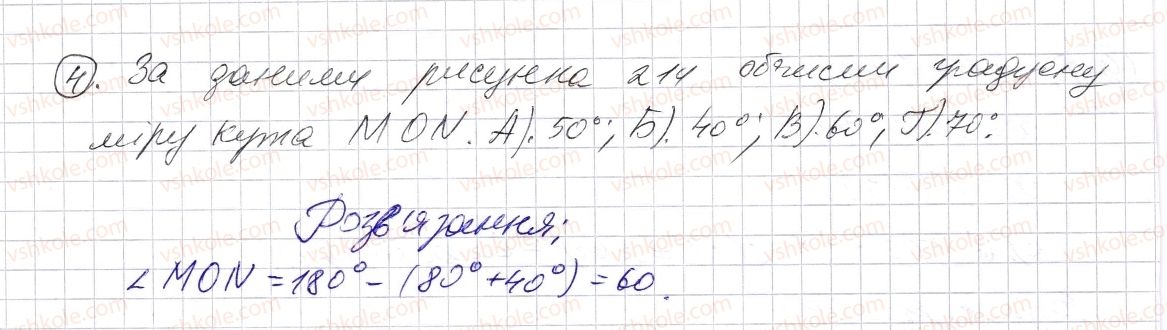 4). За даними рисунка 214 обчисли градусну
міру кута MON. А). 50°; Б). 40°; В). 60°; Г). 70°.
Розв'язання;
∠MON = 180° - (80° + 40°) = 60.